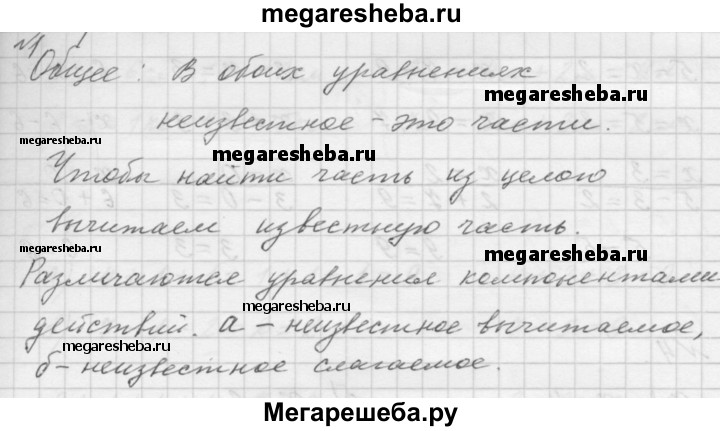 megaresheba.ru
№1
Общее: В обоих уравнениях
megaresheba.ru
неизвестное - это части.
megaresheba.ru
megaresheba.ru
Чтобы найти часть из целого
вычитаем известную часть.
megaresheba.ru
megaresheba.ru
Различаются уравнения компонентами
megaresheba.ru
действий. а - неизвестное вычитаемое,
megaresheba.ru
б - неизвестное слагаемое.
Мегарешеба.ру